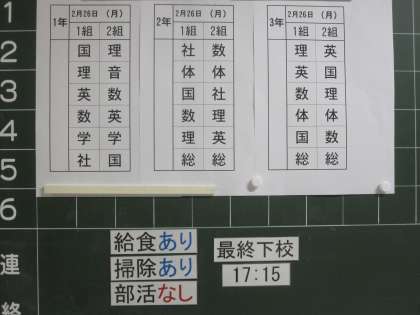 1年 2月26日 (月)
1組 2組
国 理
理 音
英 数
数 英
学 学
社 国
2年 2月26日 (月)
1組 2組
社 数
体 体
国 社
数 理
理 英
総 総
3年 2月26日 (月)
1組 2組
理 英
英 国
数 理
体 体
国 数
総 総
1
2
3
4
5
6
連絡
給食あり
掃除あり
部活なし
最終下校
17:15